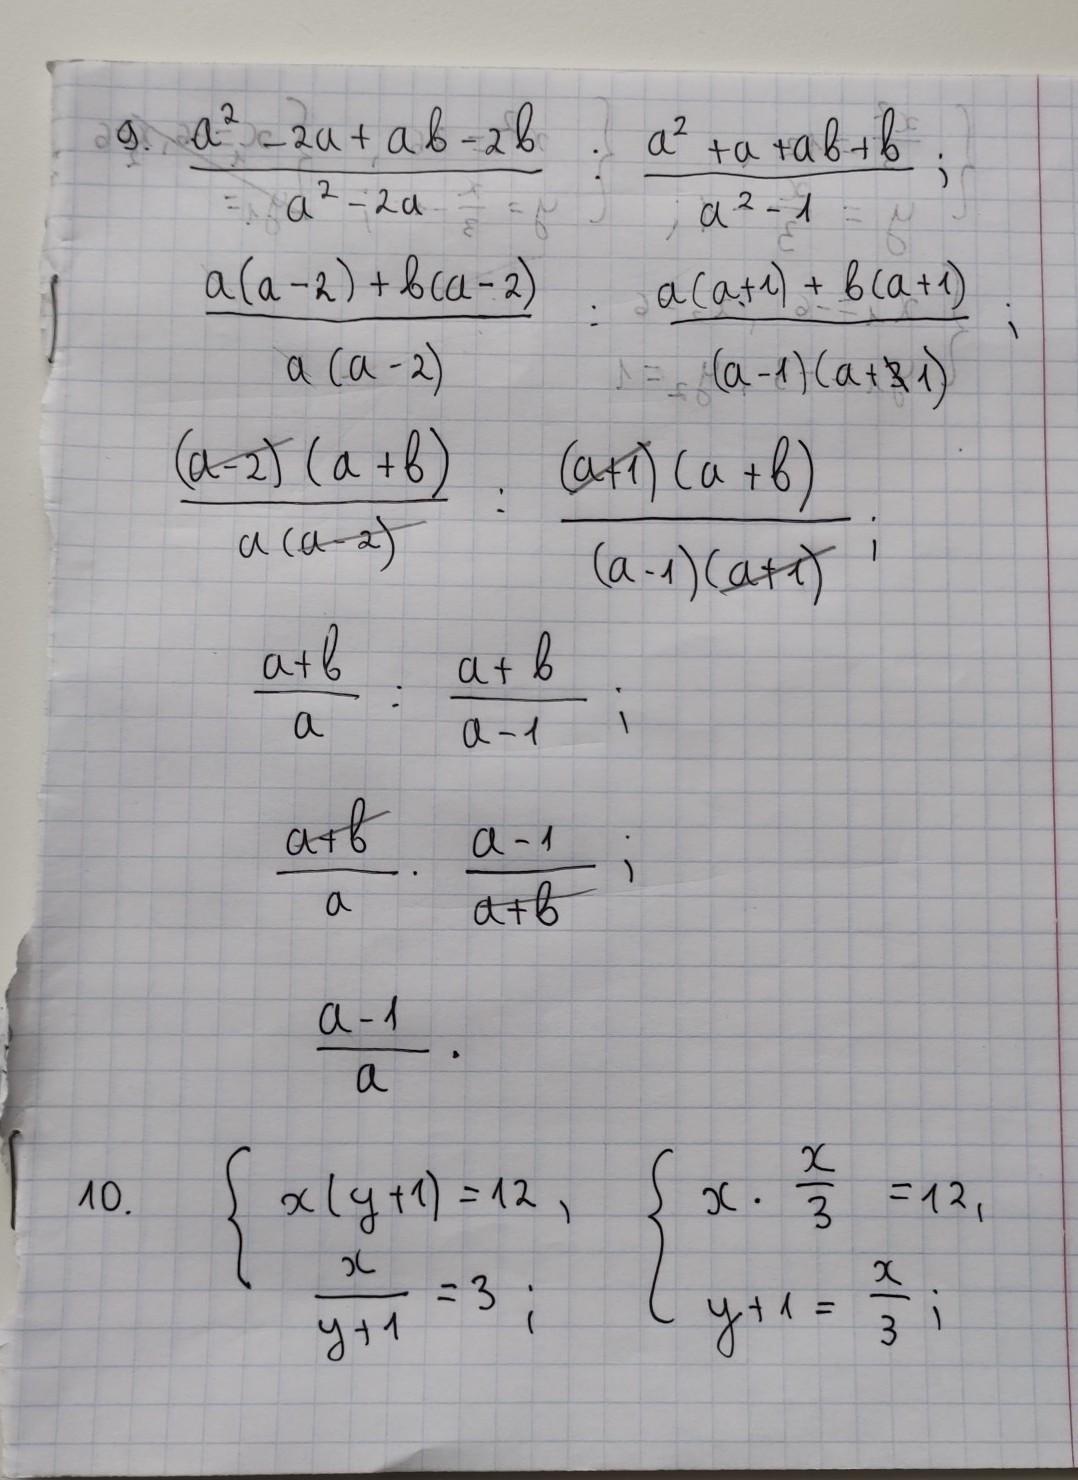 9. a² - 2a + ab - 2b / a² - 2a : a² + a + ab + b / a² - 1 ;
a(a-2) + b(a-2) / a(a-2) : a(a+1) + b(a+1) / (a-1)(a+1) ;
(a-2)(a+b) / a(a-2) : (a+1)(a+b) / (a-1)(a+1) ;
a+b / a : a+b / a-1 ;
a+b / a · a-1 / a+b ;
a-1 / a .
10. { x(y+1) = 12, { x · x/3 = 12,
x / y+1 = 3 ; y+1 = x/3 ;